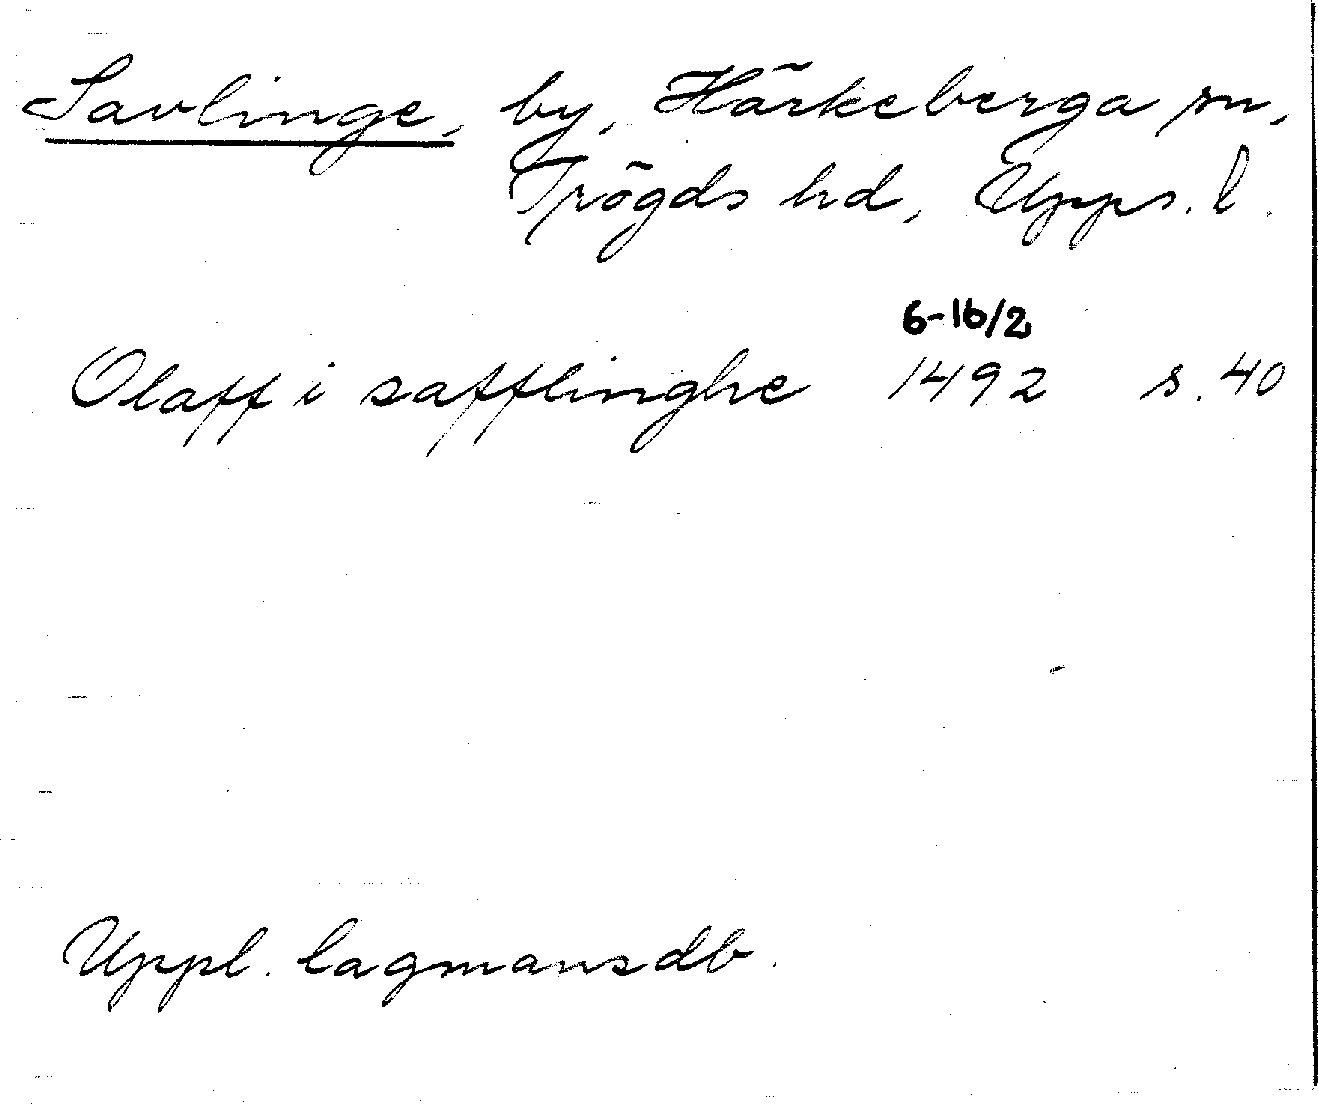 Savlinge, by, Härkeberga sn,
Trögds hd, Upps. l.
6-16/2
Olaff i safflinghe 1492 s. 40
Uppl. lagmansdb.